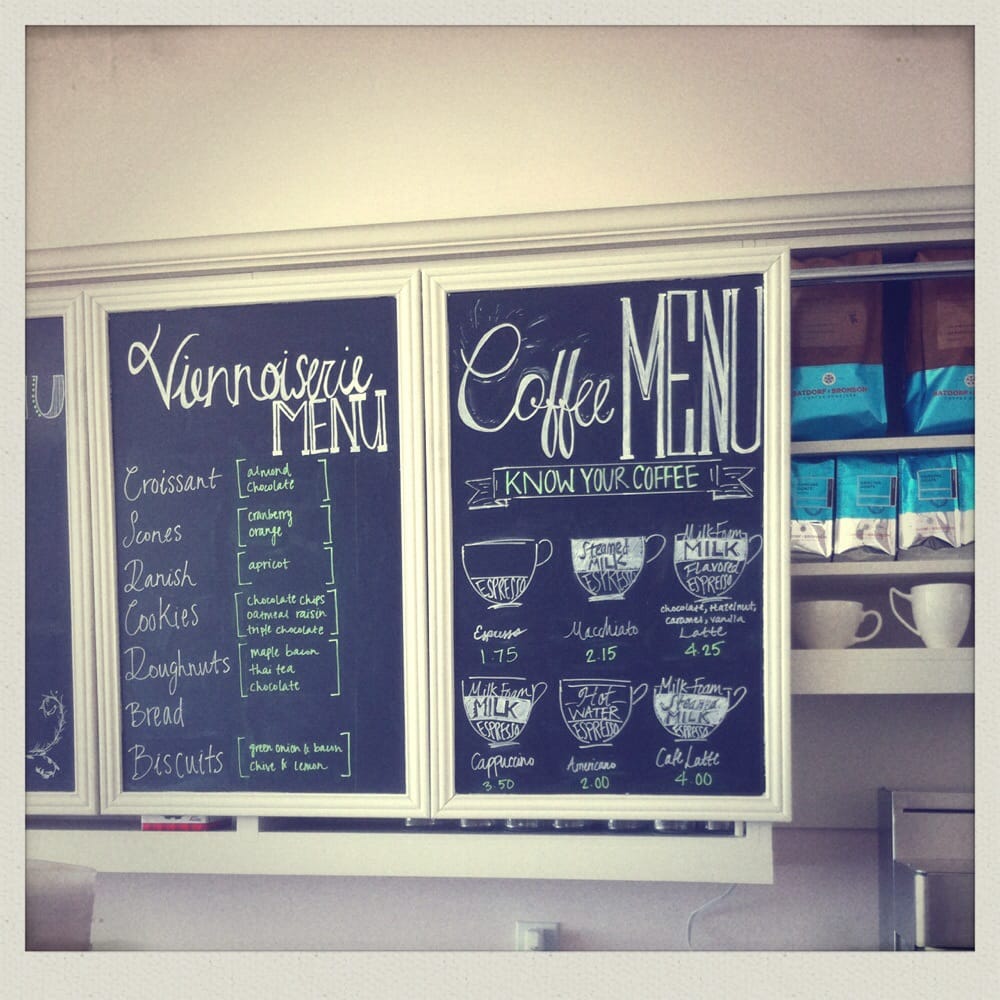 U
Viennoiserie
MENU
Croissant
almond
chocolate
Scones
cranberry
orange
Danish
apricot
Cookies
chocolate chips
oatmeal raisin
triple chocolate
Doughnuts
maple bacon
thai tea
chocolate
Bread
Biscuits
green onion & bacon
chive & lemon
Coffee MENU
KNOW YOUR COFFEE
ESPRESSO
Espresso
1.75
Steamed
MILK
ESPRESSO
Macchiato
2.15
Milk Foam
MILK
Flavored
ESPRESSO
chocolate, Hazelnut,
caramel, vanilla
Latte
4.25
Milk Foam
MILK
ESPRESSO
Cappuccino
3.50
Hot
WATER
ESPRESSO
Americano
2.00
Milk Foam
Steamed
MILK
ESPRESSO
Cafe Latte
4.00
BATDORF & BRONSON
COFFEE ROASTERS
BATDORF & BRONSON